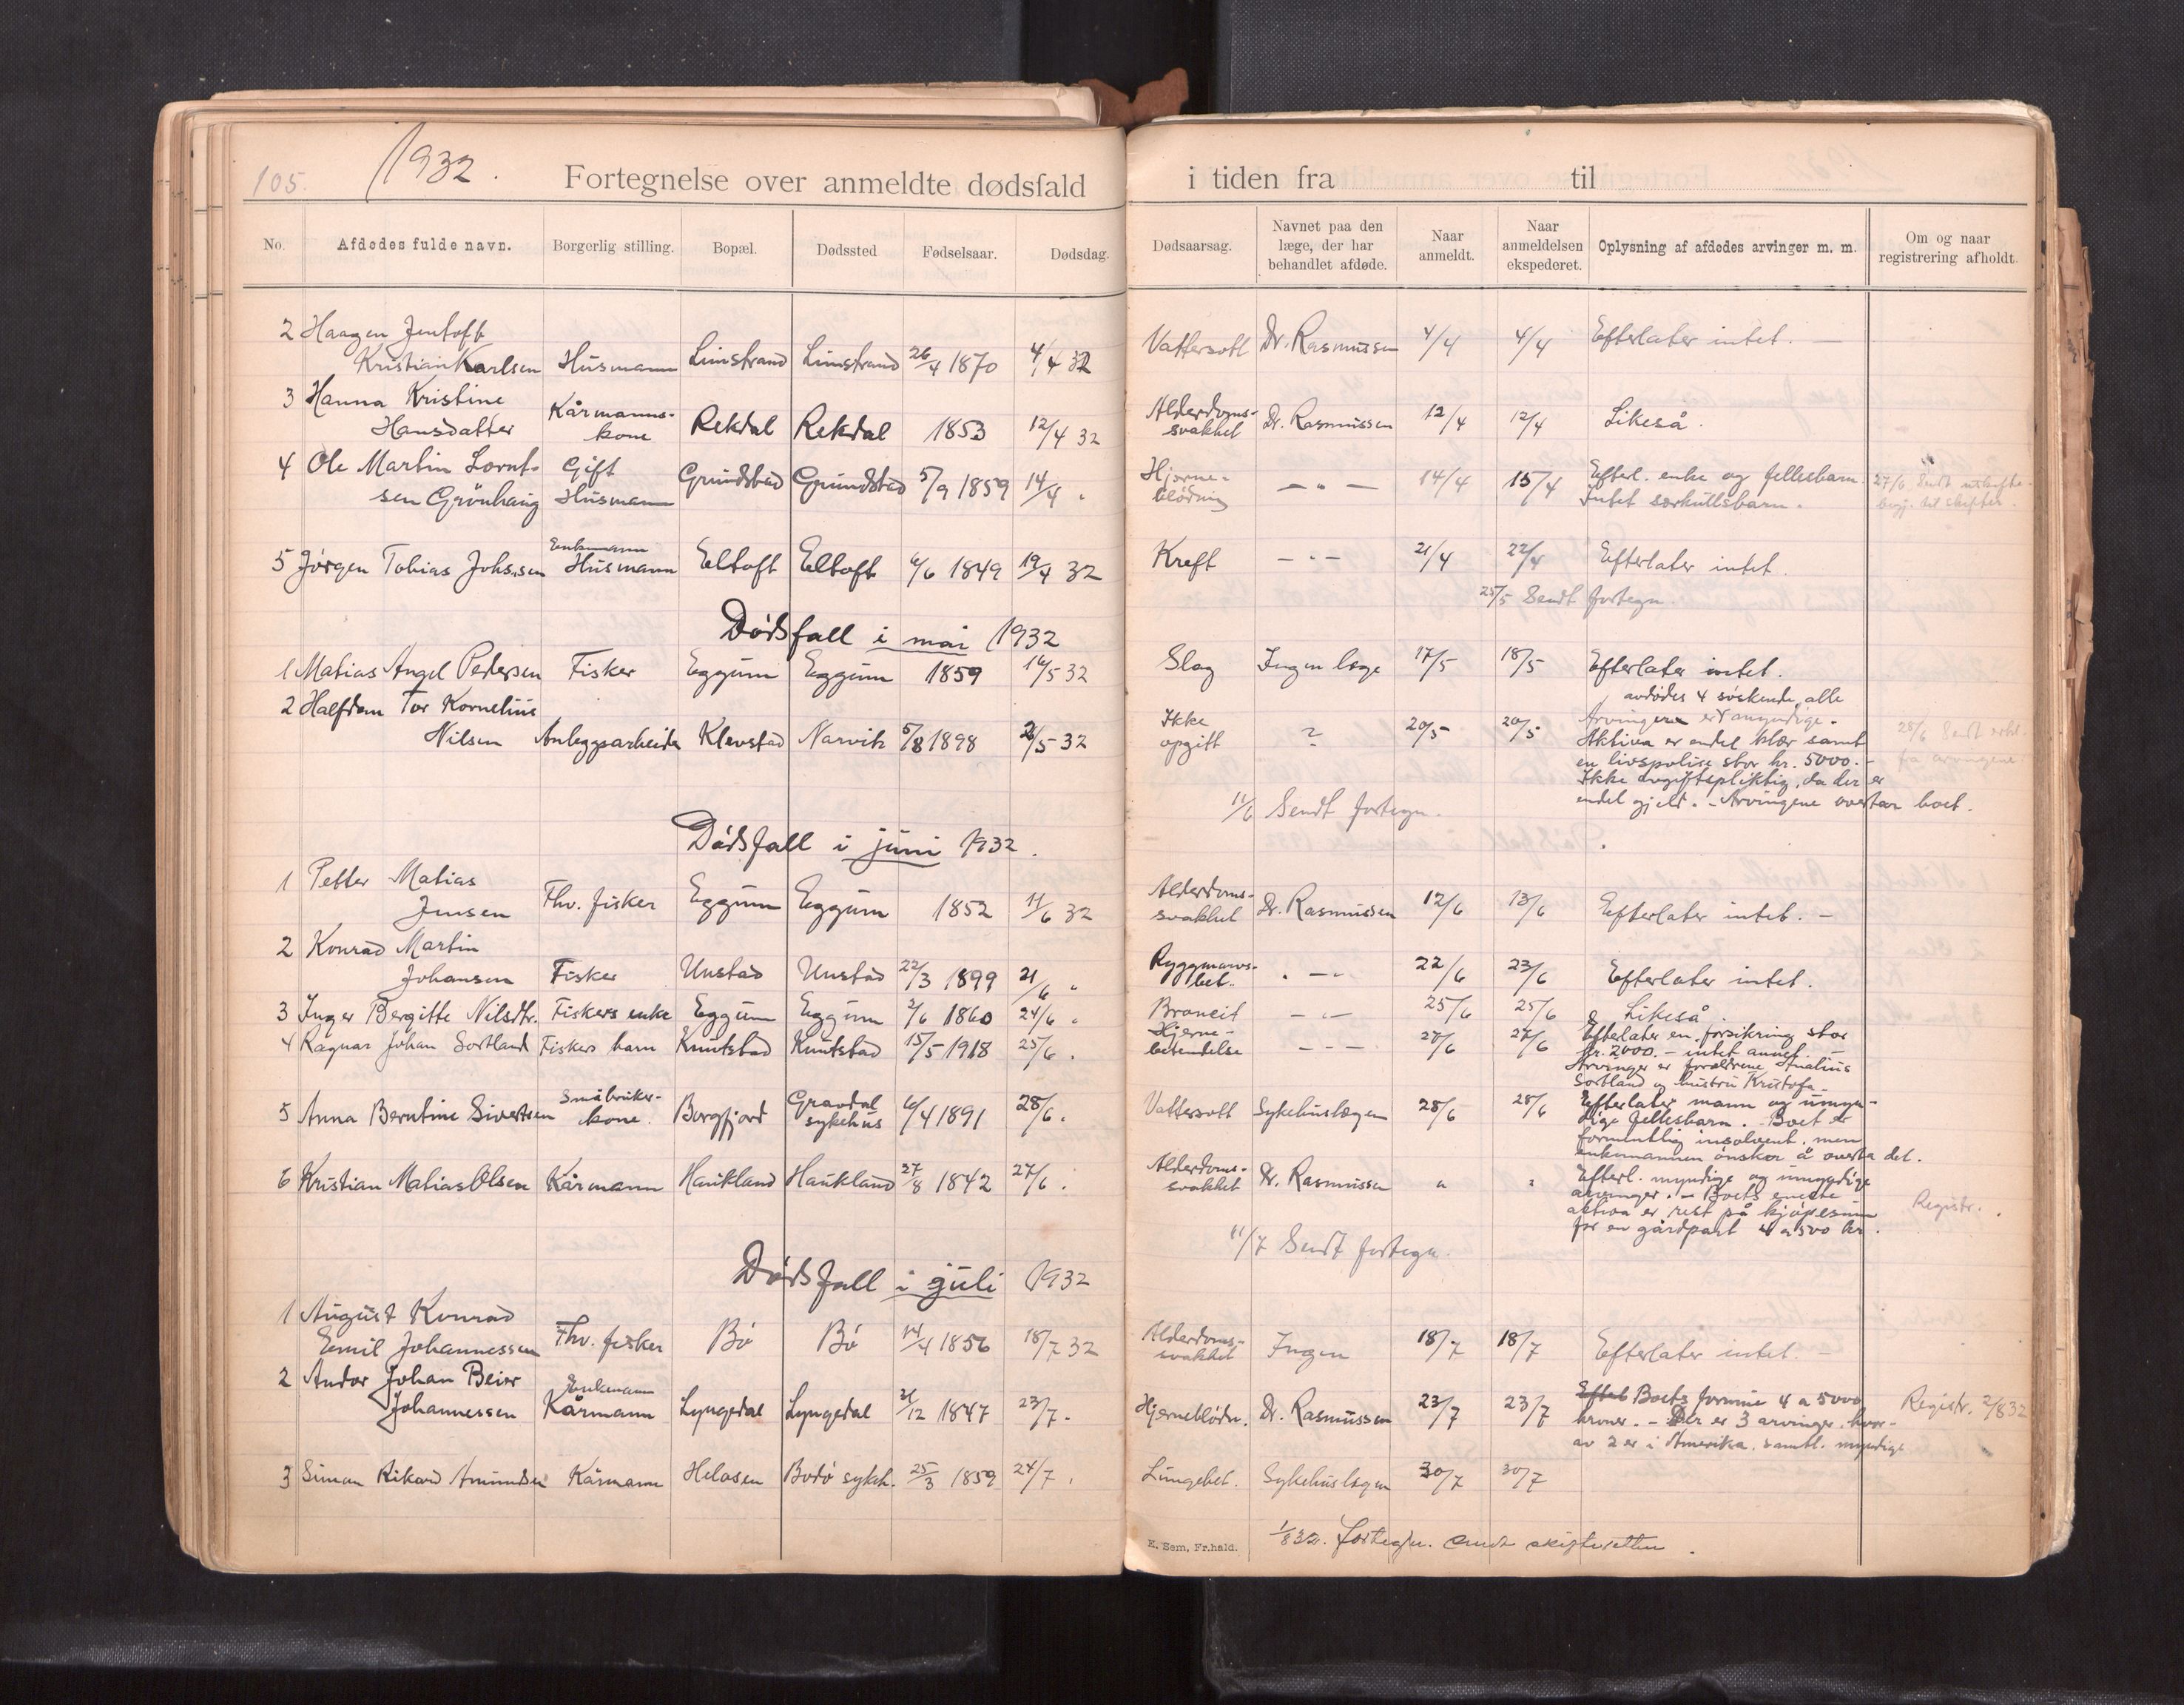 105.
1932.
Fortegnelse over anmeldte dødsfald i tiden fra til
No. Afdødes fulde navn. Borgerlig stilling. Bopæl. Dødssted Fødselsaar. Dødsdag. Dødsaarsag. Navnet paa den læge, der har behandlet afdøde. Naar anmeldt. Naar anmeldelsen ekspederet. Oplysning af afdødes arvinger m. m. Om og naar registrering afholdt.
2 Haagen Jentoft
Kristian Karlsen Husmann Limstrand Limstrand 26/4 1870 4/4 32 Vattersott Dr. Rasmussen 4/4 4/4 Efterlater intet.
3 Hanna Kristine
Hansdatter Kårmanns-
kone Rekdal Rekdal 1853 12/4 32 Alderdoms-
svakhet Dr. Rasmussen 12/4 12/4 Likeså.
4 Ole Martin Lornt-
sen Grönhaug Gift
Husmann Grundstad Grundstad 5/9 1859 14/4 " Hjerne-
blödning — " — 14/4 15/4 Efterl. enke og fellesbarn.
Intet særkullsbarn.
27/6 Sendt
til skifter.
5 Jörgen Tobias Johs.sen Enkemann
Husmann Eltoft Eltoft 6/6 1849 19/4 32 Kreft — " — 21/4 22/4 Efterlater intet.
25/5 Sendt fortegn.
Dödsfall i mai 1932
1 Matias Angel Pedersen Fisker Eggum Eggum 1859 16/5 32 Slag Ingen læge 17/5 18/5 Efterlater intet.
2 Halfdan Tor Kornelius
Nilsen Anleggsarbeider Klevstad Narvik 5/8 1898 2/5 32 Ikke
opgitt ? 20/5 20/5
avdödes 4 söskende, alle
Arvingene er myndige.
Aktiva er endel klær samt
en livspolise stor kr. 5000.-
Ikke avgiftspliktig, da der er
endel gjeld. - Arvingene overtar boet.
28/6 Sendt erkl.
fra arvingene.
11/6 Sendt fortegn.
Dödsfall i juni 1932.
1 Petter Matias
Jensen Fhv. fisker Eggum Eggum 1852 11/6 32 Alderdoms-
svakhet Dr. Rasmussen 12/6 13/6 Efterlater intet. —
2 Konrad Martin
Johansen Fisker Unstad Unstad 22/3 1899 21/6 " Ryggmarvs-
bet. " — " 22/6 23/6 Efterlater intet.
3 Inger Bergitte Nilsdtr. Fiskers enke Eggum Eggum 2/6 1860 24/6 " Broncit — " — 25/6 25/6 Likeså
4 Ragnar Johan Sortland Fiskers barn Knutstad Knutstad 15/5 1918 25/6 " Hjerne-
betendelse — " — 27/6 27/6 Efterlater en forsikring stor
kr. 2000. - intet annet. —
Arvinger er foreldrene Analius
Sortland og hustru Kristofa.
5 Anna Berntine Sivertsen Småbruker-
kone. Borgfjord Gravdal
sykehus 6/4 1891 28/6. Vattersott Sykehuslægen 28/6 28/6 Efterlater mann og umyn-
dige fellesbarn. Boet er
formentlig insolvent, men
enkemannen önsker å overta det.
6 Kristian Matias Olsen Kårmann Haukland Haukland 27/8 1842 27/6. Alderdoms-
svakhet Dr. Rasmussen " " Efterl. myndige og umyndige
arvinger. - Boets eneste
aktiva er rest på kjöpesum
for en gårdpart 4 a 500 kr.
Registr.
11/7 Sendt fortegn.
Dödsfall i juli 1932
1 August Konrad
Emil Johannessen Fhv. fisker Bö Bö 14/4 1856 18/7 32 Alderdoms-
svakhet Ingen 18/7 18/7 Efterlater intet. —
2 Andor Johan Beier
Johannessen Enkemann
Kårmann Lyngedal Lyngedal 21/12 1847 23/7. Hjerneblödn. Dr. Rasmussen 23/7 23/7 Efterl Boets formue 4 a 5000
kroner. - Der er 3 arvinger, hvor-
av 2 er i Amerika. samtl. myndige
Registr. 2/8 32
3 Simon Rikard Amundsen Kårmann Helosen Bodö sykeh. 25/3 1859 24/7. Lungebet. Sykehuslegen 30/7 30/7
1/8 32. fortegn. sendt skifteretten.
E. Sem, Fr.hald.